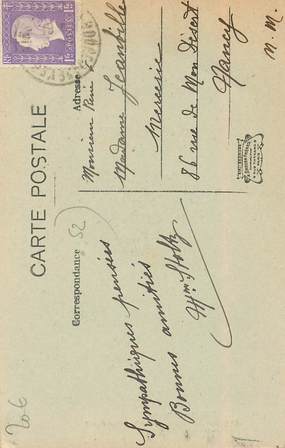 CARTE POSTALE
Correspondance
52
Sympathiques pensées
Bonnes amitiés
Mme Stoltz
Adresse
Monsieur René
Madame Jeanville
Mercerie
86 rue de Mon Désert
Nancy
M. M.
206